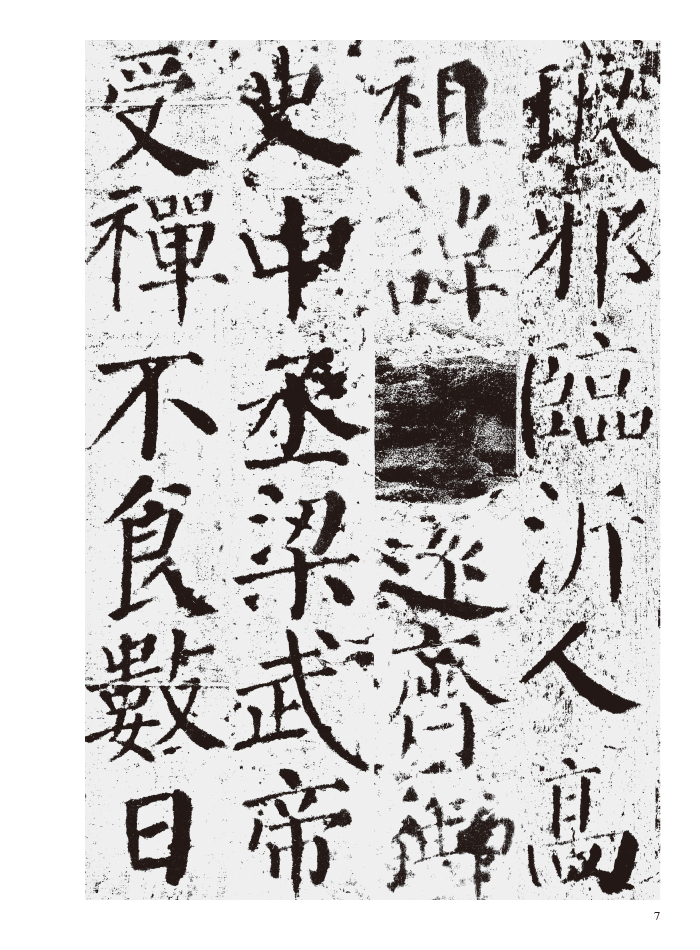 琅邪臨沂人高
祖諱遠齊御
史中丞梁武帝
受禪不食數日
7